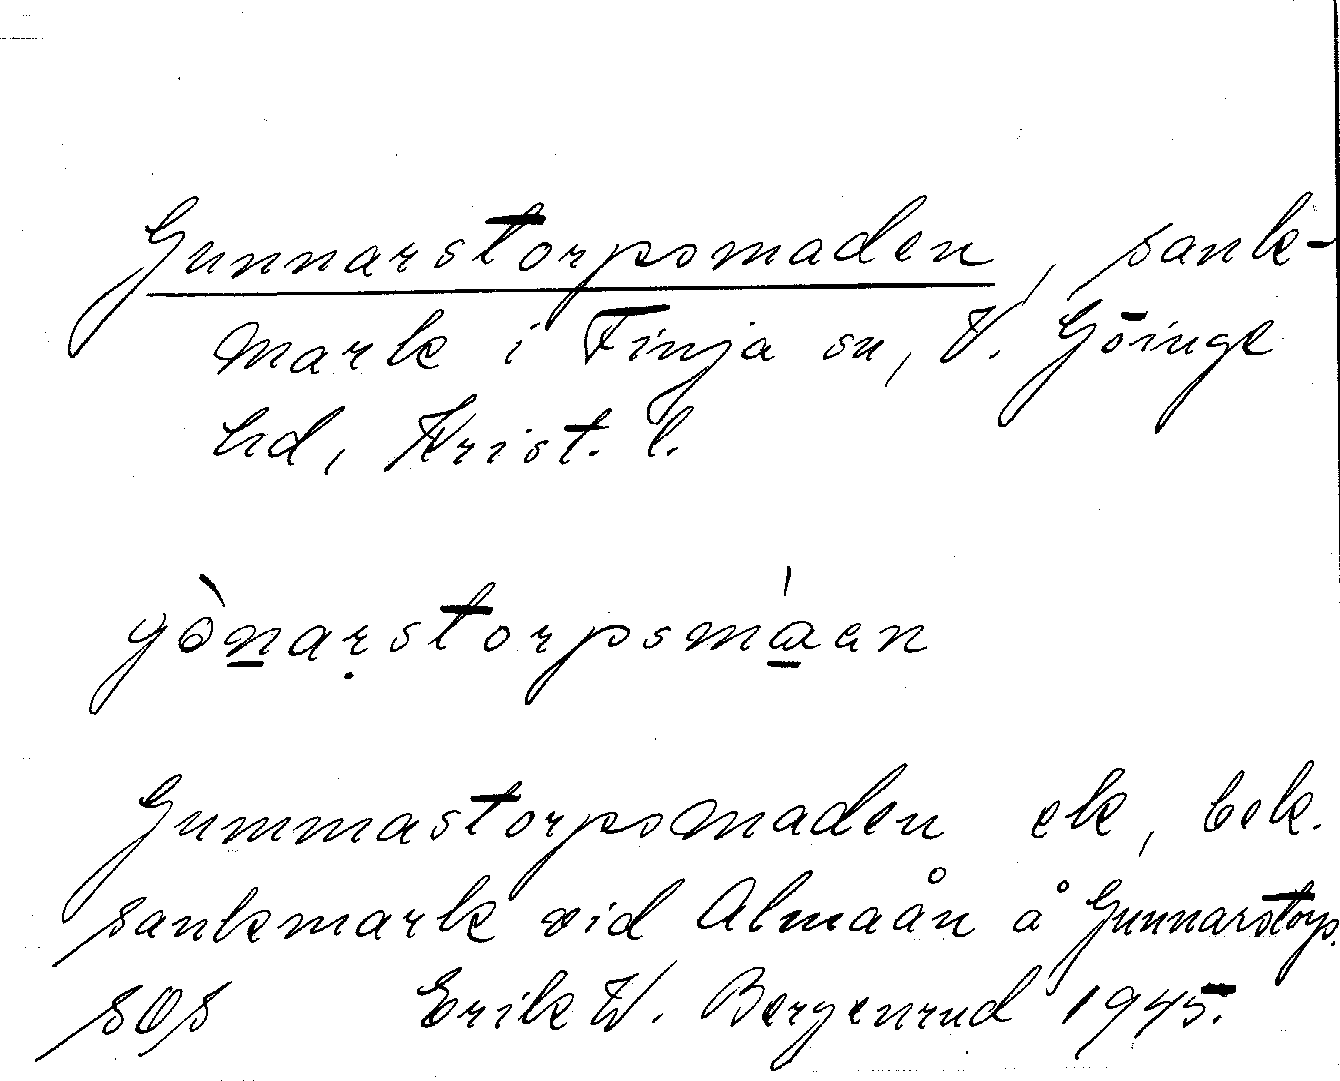 Gunnarstorpsmaden, sank-
mark i Finja sn, V. Göinge
hd, Krist. l.
gònarstorpsmáen
Gummastorpsmaden ek, bek.
sankmark vid Almaån å Gunnarstorp.
SOS Erik W. Bergenrud 1945.